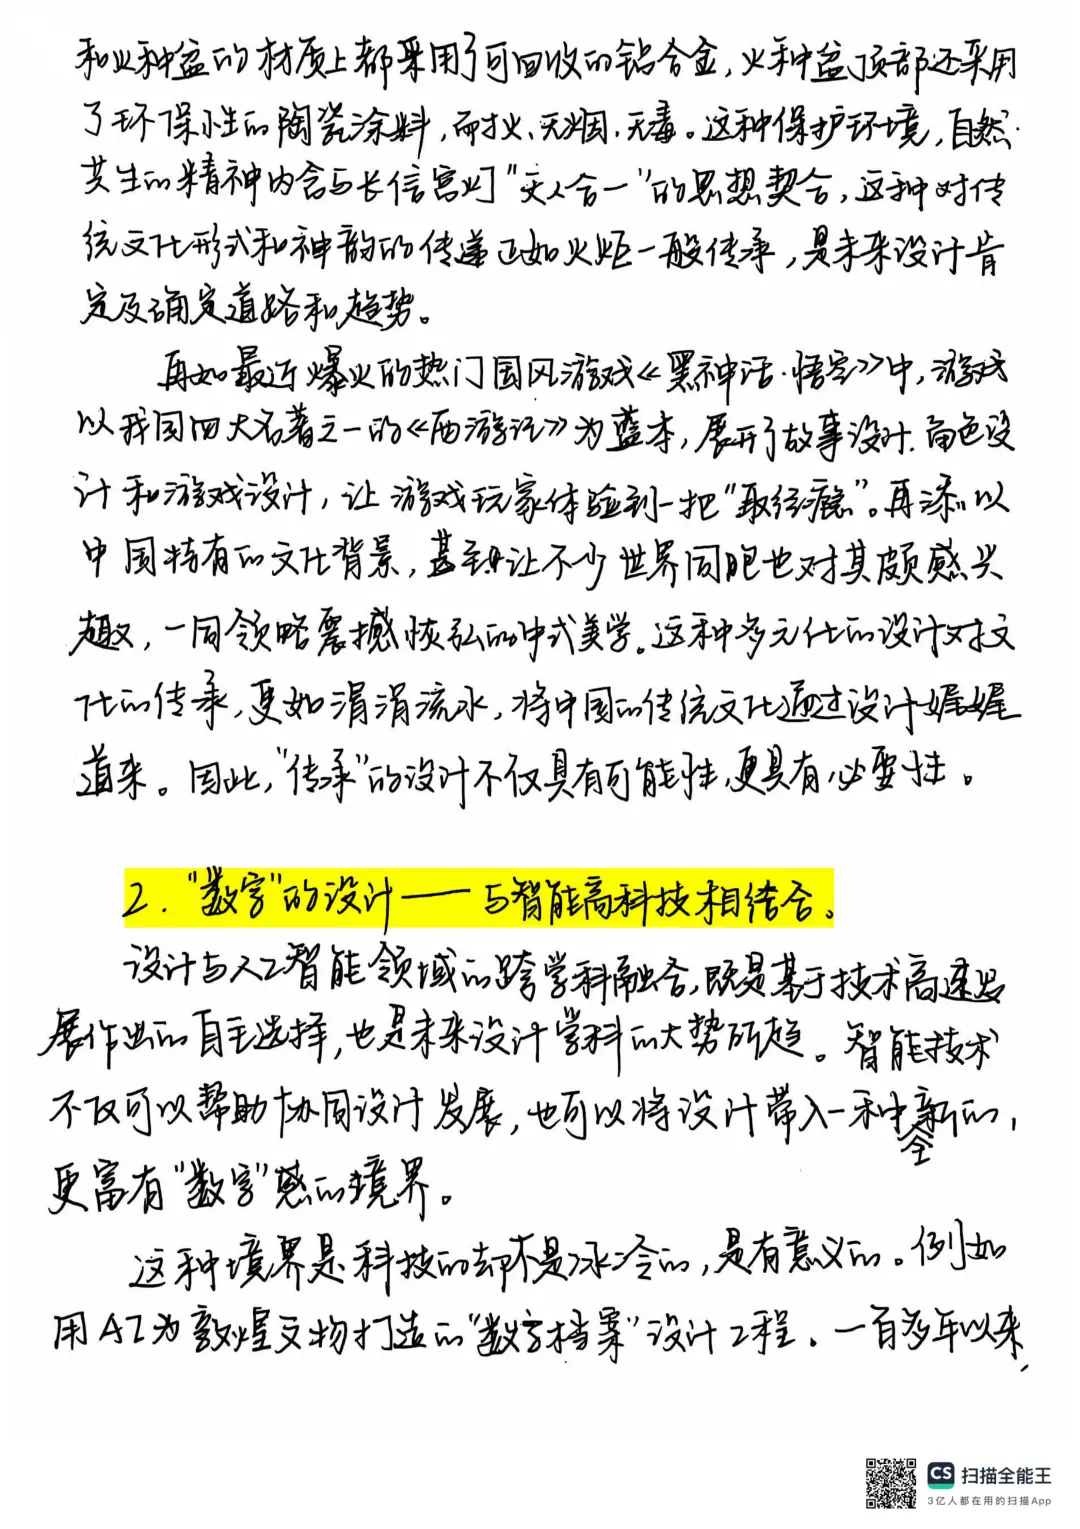 和火种盆的材质上都采用了可回收的铝合金，火种盆顶部还采用
了环保性的陶瓷涂料，耐火、无烟、无毒。这种保护环境，自然
共生的精神内含与长信宫灯“天人合一”的思想契合，这种对传
统文化形式和神韵的传递正如火炬一般传承，是未来设计肯
定及确定道路和趋势。
再如最近爆火的热门国风游戏《黑神话·悟空》中，游戏
以我国四大名著之一的《西游记》为蓝本，展开了故事设计、角色设
计和游戏设计，让游戏玩家体验到一把“取经瘾”。再添以
中国特有的文化背景，甚至让不少世界同胞也对其颇感兴
趣，一同领略震撼恢弘的中式美学。这种多元化的设计对文
化的传承，更如涓涓流水，将中国的传统文化通过设计娓娓
道来。因此，“传承”的设计不仅具有可能性，更具有必要性。
2.“数字”的设计——与智能高科技相结合。
设计与人工智能领域的跨学科融合，既是基于技术高速发
展作出的自主选择，也是未来设计学科的大势所趋。智能技术
不仅可以帮助协同设计发展，也可以将设计带入一种全新的，
更富有“数字”感的境界。
这种境界是科技的却不是冰冷的，是有意义的。例如
用AI为敦煌文物打造的“数字档案”设计工程。一百多年以来，
CS 扫描全能王
3亿人都在用的扫描App